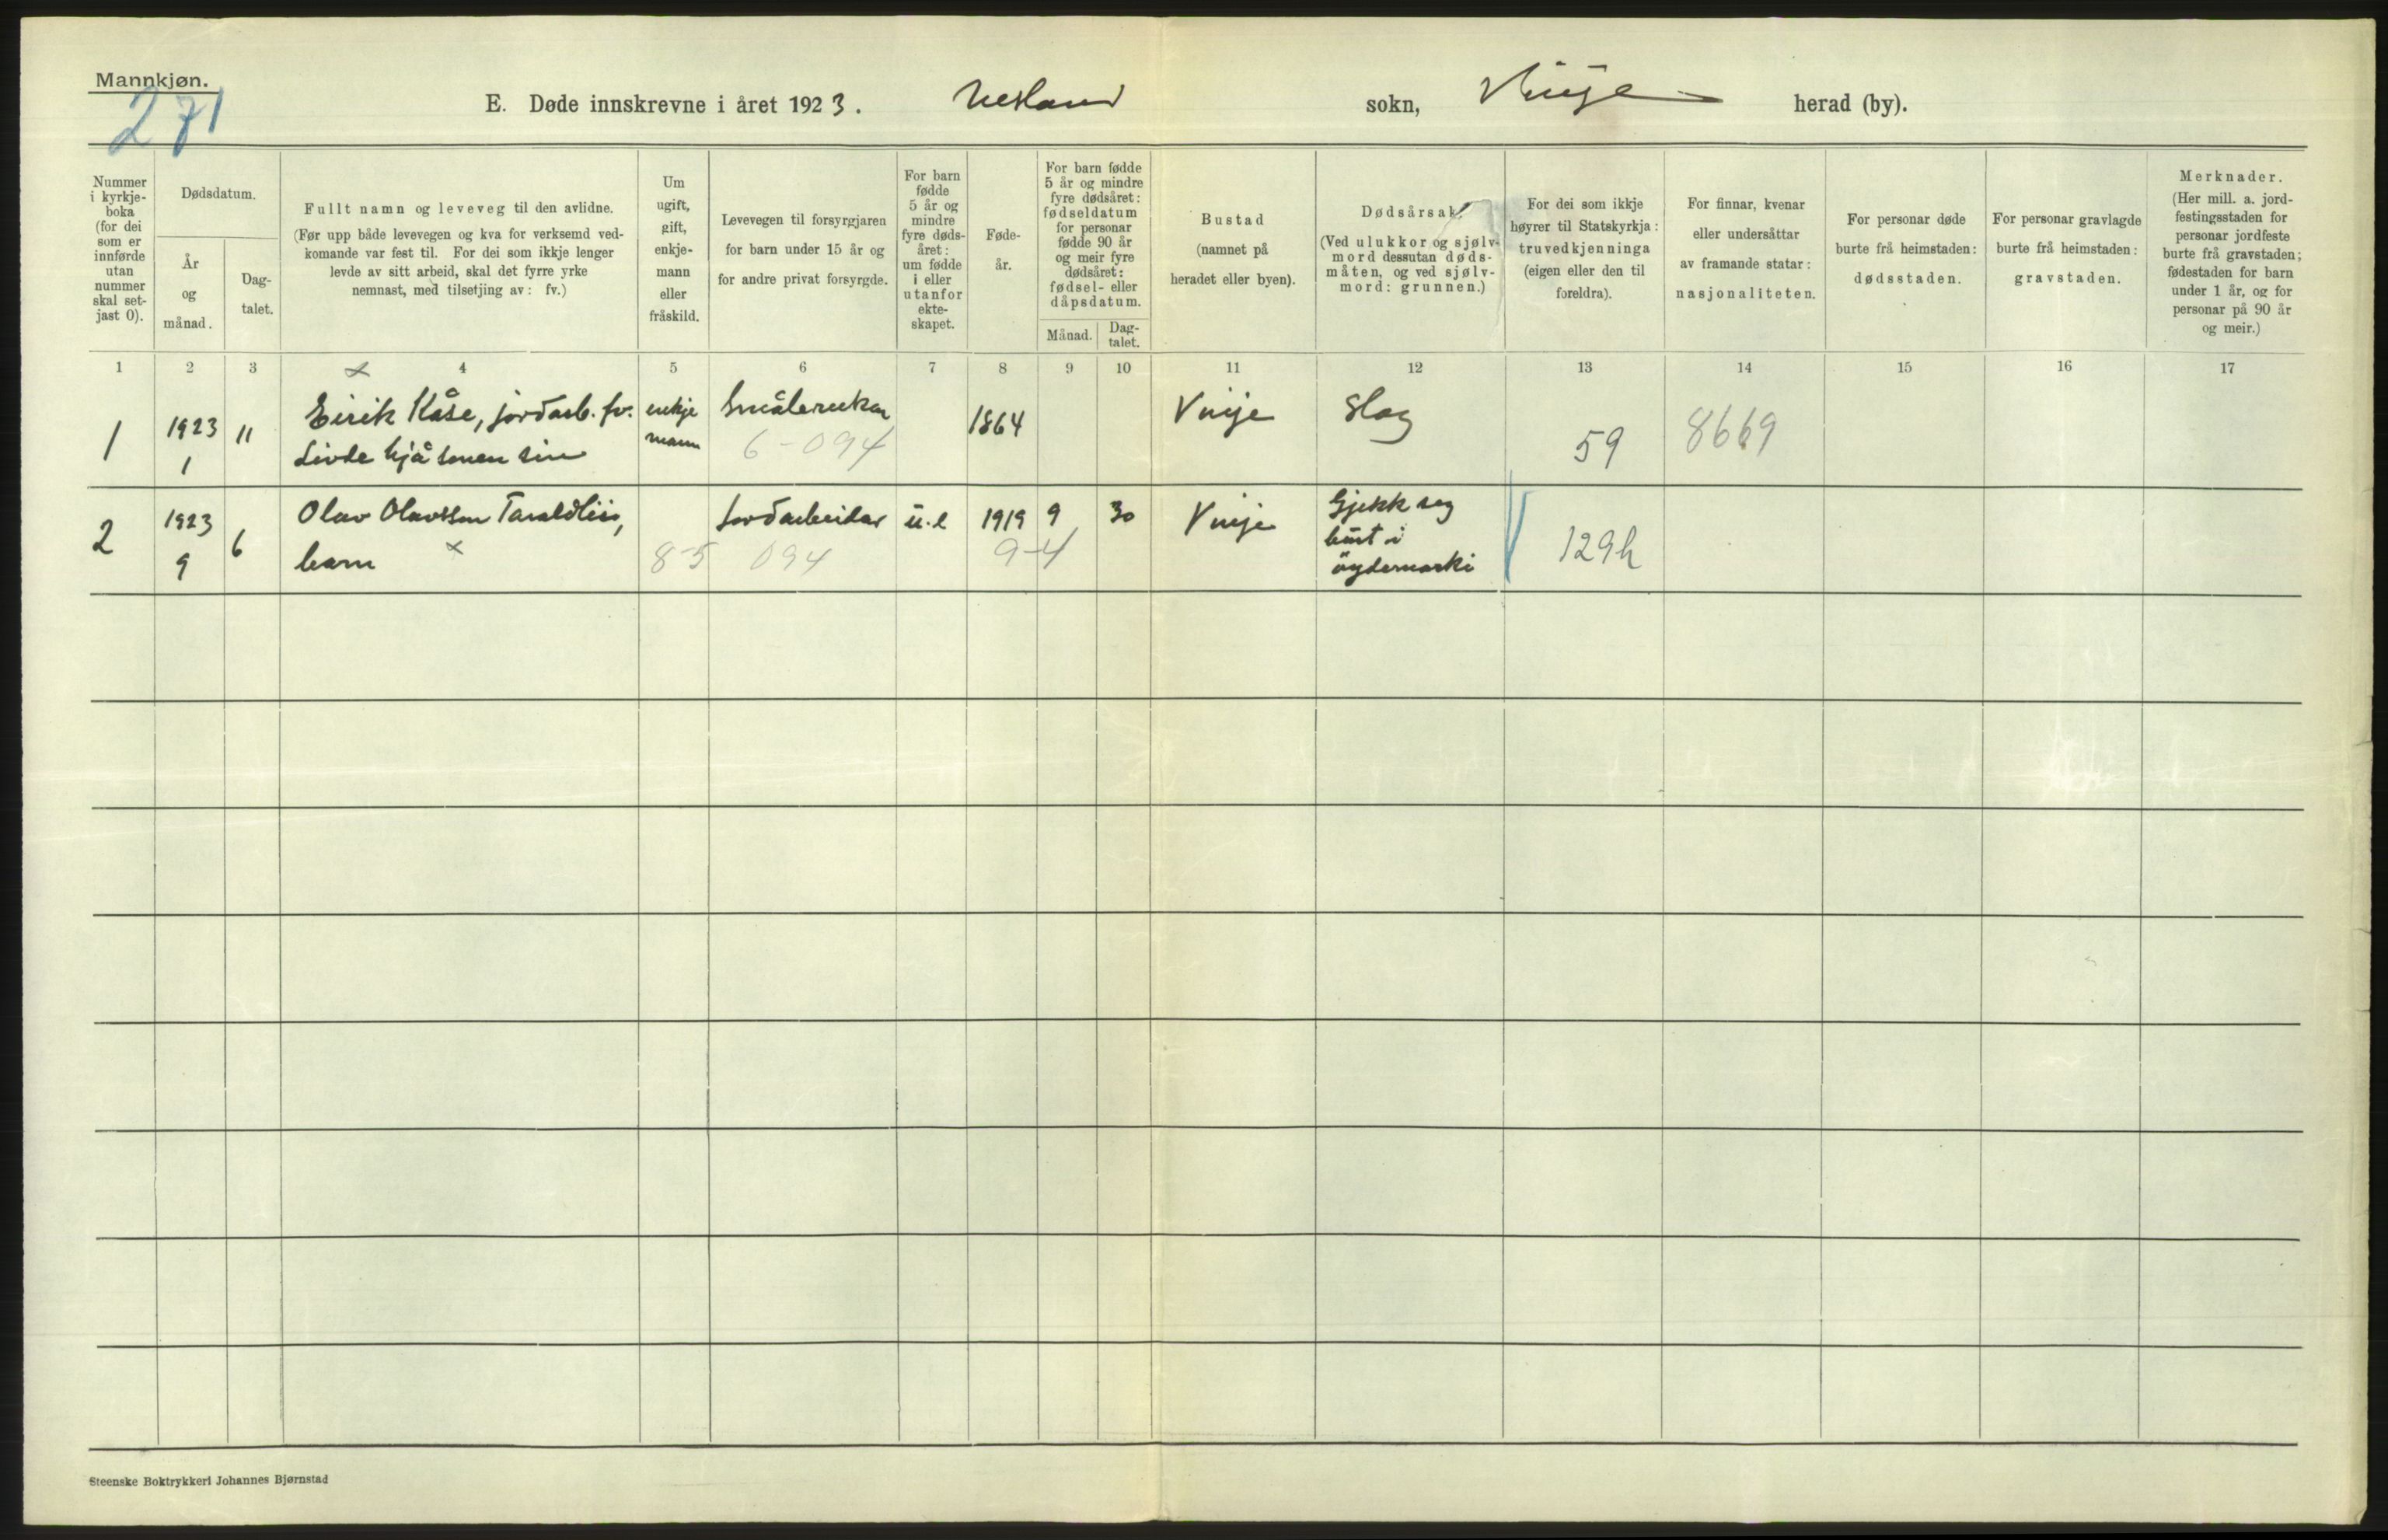 Mannkjøn.
271
E. Døde innskrevne i året 1923. Nesland sokn, Vinje herad (by).
Nummer i kyrkje-boka (for dei som er innførde utan nummer skal set-jast 0).
Dødsdatum.
År og månad.
Dag-talet.
Fullt namn og leveveg til den avlidne.
(Før upp både levevegen og kva for verksemd ved-
komande var fest til. For dei som ikkje lenger
levde av sitt arbeid, skal det fyrre yrke
nemnast, med tilsetjing av: fv.)
Um ugift, gift, enkje-mann eller fråskild.
Levevegen til forsyrgjaren
for barn under 15 år og
for andre privat forsyrgde.
For barn fødde 5 år og mindre fyre døds-året: um fødde i eller utanfor ekte-skapet.
Føde-år.
For barn fødde 5 år og mindre fyre dødsåret: fødseldatum for personar fødde 90 år og meir fyre dødsåret: fødsel- eller dåpsdatum.
Månad.
Dag-talet.
Bustad
(namnet på
heradet eller byen).
Dødsårsak.
(Ved ulukkor og sjølv-
mord dessutan døds-
måten, og ved sjølv-
mord: grunnen.)
For dei som ikkje
høyrer til Statskyrkja:
truvedkjenninga
(eigen eller den til
foreldra).
For finnar, kvenar
eller undersåttar
av framande statar:
nasjonaliteten.
For personar døde
burte frå heimstaden:
dødsstaden.
For personar gravlagde
burte frå heimstaden:
gravstaden.
Merknader.
(Her mill. a. jord-
festingsstaden for
personar jordfeste
burte frå gravstaden;
fødestaden for barn
under 1 år, og for
personar på 90 år
og meir.)
1 2 3 4 5 6 7 8 9 10 11 12 13 14 15 16 17
1 1923 11 Eirik Kåse, jordarb. fv. enkje Småbrukar 1864 Vinje Slag 59 8669
1 Livde hjå sonen sin mann 6-094
2 1923 6 Olav Olavsson Taraldlii, Jordarbeidar u.e 1919 9 30 Vinje Gjekk seg
9 barn x 85 094 9-4 burt i 129h
øydemarki
Steenske Boktrykkeri Johannes Bjørnstad